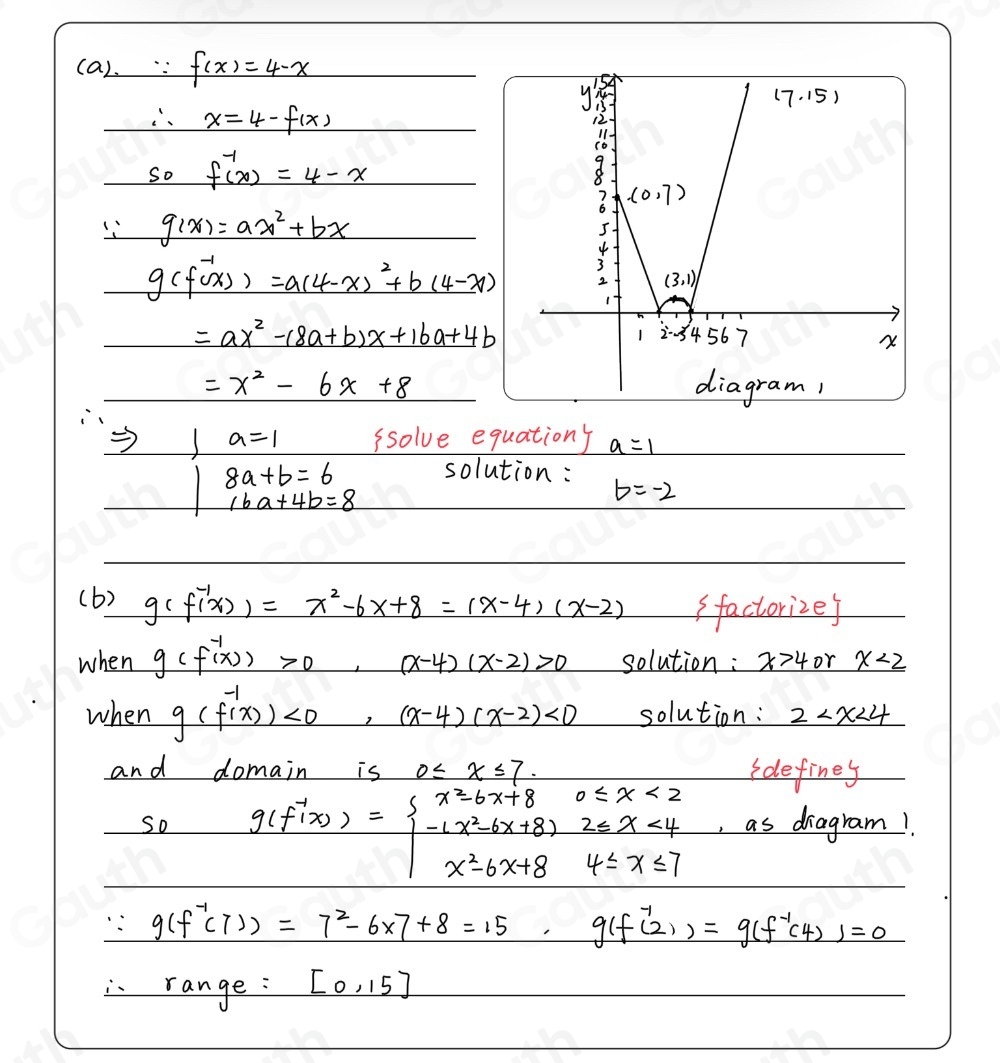 (a). ∵ f(x)=4-x
∴ x=4-f(x)
so f⁻¹(x) = 4-x
∵ g(x)=ax²+bx
g(f⁻¹(x)) =a(4-x)²+b(4-x)
= ax²-(8a+b)x+16a+4b
= x² - 6x +8
y
15
14
13
12
11
10
9
8
7
6
5
4
3
2
1
(7.15)
(0,7)
(3,1)
1 2 3 4 5 6 7
x
diagram 1
∴ ⇒ { a=1 {solve equation} a=1
8a+b=6 solution:
16a+4b=8 b=-2
(b) g(f⁻¹(x)) = x²-6x+8 =(x-4)(x-2) {factorize}
when g(f⁻¹(x)) >0 , (x-4)(x-2)>0 solution: x>4 or x<2
when g(f⁻¹(x))<0 , (x-4)(x-2)<0 solution: 2<x<4
and domain is 0≤x≤7. {define}
x²-6x+8 0≤x<2
so g(f⁻¹(x)) = { -(x²-6x+8) 2≤x<4 , as diagram 1.
x²-6x+8 4≤x≤7
∵ g(f⁻¹(7)) = 7²-6×7+8=15 . g(f⁻¹(2)) = g(f⁻¹(4))=0
∴ range: [0,15]